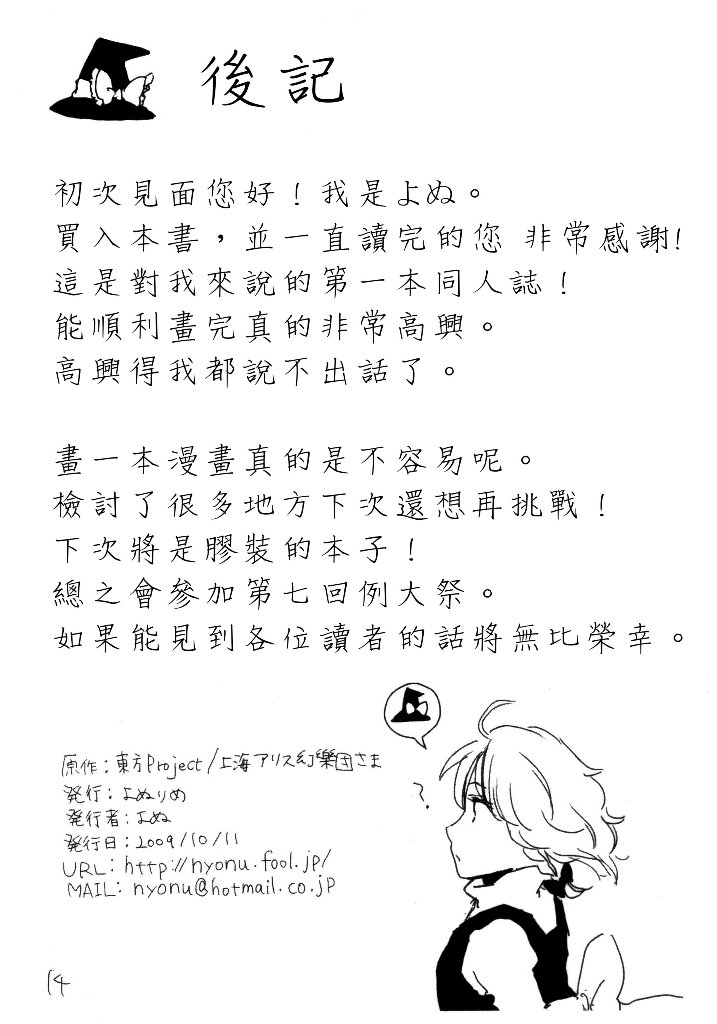 後記
初次見面您好！我是よぬ。
買入本書，並一直讀完的您 非常感謝！
這是對我來說的第一本同人誌！
能順利畫完真的非常高興。
高興得我都說不出話了。
畫一本漫畫真的是不容易呢。
檢討了很多地方下次還想再挑戰！
下次將是膠裝的本子！
總之會參加第七回例大祭。
如果能見到各位讀者的話將無比榮幸。
原作：東方Project/上海アリス幻樂団さま
発行：よぬりめ
発行者：よぬ
発行日：2009/10/11
URL：http://nyonu.fool.jp/
MAIL：nyonu@hotmail.co.jp
?
14